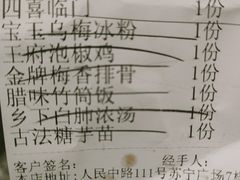 四喜临门 1份
宝玉乌梅冰粉 1份
王府泡椒鸡 1份
金牌梅香排骨 1份
腊味竹筒饭 1份
乡下白肺浓汤 1份
古法糖芋苗 1份
客户签名: 经手人:
本店地址:人民中路111号苏宁广场7楼